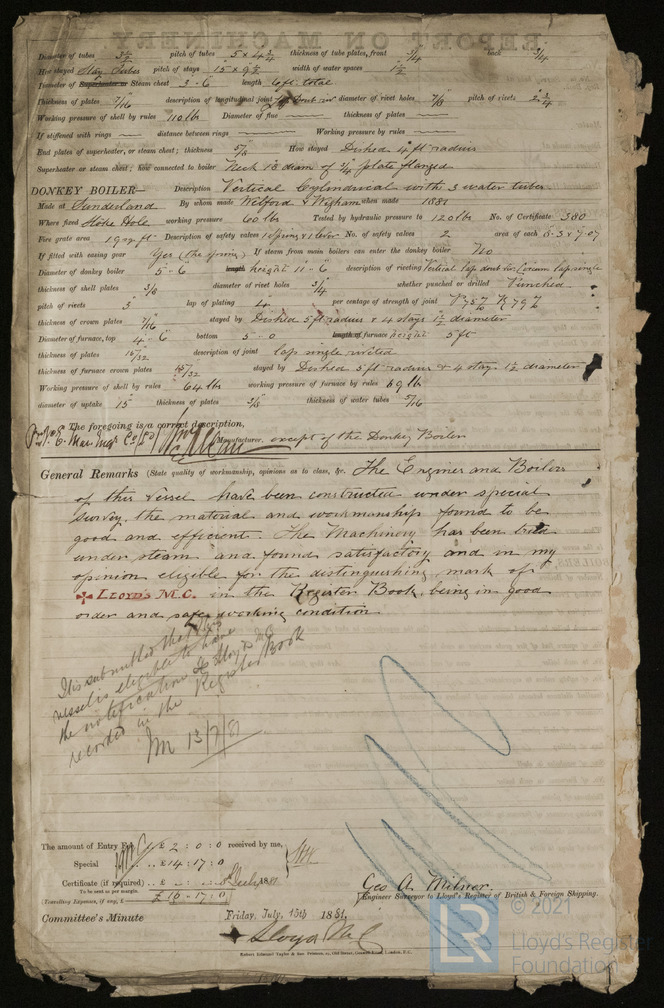 REPORT ON MACHINERY
Diameter of tubes 3½ pitch of tubes 5 x 4¾ thickness of tube plates, front ¾ back ¾
How stayed Stay Tubes pitch of stays 15 x 9½ width of water spaces
Diameter of Superheater or Steam chest 3 - 6 length 6 ft. total
Thickness of plates 7/16 description of longitudinal joint Lap Doub riv diameter of rivet holes 7/8 pitch of rivets 2¾
Working pressure of shell by rules 110 lb Diameter of flue thickness of plates
If stiffened with rings distance between rings Working pressure by rules
End plates of superheater, or steam chest; thickness 5/8 How stayed Dished 4 ft radius
Superheater or steam chest; how connected to boiler Neck 18 diam of ¾ plate flanged
DONKEY BOILER— Description Vertical Cylindrical with 3 water tubes
Made at Sunderland By whom made Wilford & Wigham when made 1881
Where fixed Stoke Hole working pressure 60 lbs Tested by hydraulic pressure to 120 lbs No. of Certificate 380
Fire grate area 19 sq ft Description of safety valves 1 Spring & 1 lever No. of safety valves 2 area of each
If fitted with easing gear Yes (the spring) If steam from main boilers can enter the donkey boiler No
Diameter of donkey boiler 5 - 6 length height 11 - 6 description of riveting Vertical lap doub riv Circum lap single
thickness of shell plates 3/8 diameter of rivet holes ¾ whether punched or drilled Punched
pitch of rivets 3 lap of plating 4 per centage of strength of joint
thickness of crown plates 7/16 stayed by Dished 5 ft radius & 4 stays 1½ diameter
Diameter of furnace, top 4 - 6 bottom 5 - 0 length of furnace height 5 ft
thickness of plates 15/32 description of joint lap single riveted
thickness of furnace crown plates 15/32 stayed by Dished 5 ft radius & 4 stays 1½ diameter
Working pressure of shell by rules 64 lbs working pressure of furnace by rules 69 lb
diameter of uptake 15 thickness of plates 3/8 thickness of water tubes 5/16
The foregoing is a correct description,
Manufacturer. except of the Donkey Boiler
General Remarks (State quality of workmanship, opinions as to class, &c. The Engines and Boilers
of this Vessel have been constructed under special
Survey, the material and workmanship found to be
good and efficient. The Machinery has been tried
under steam and found satisfactory and in my
opinion eligible for the distinguishing mark of
✠ LLOYD'S M.C. in the Register Book, being in good
order and safe working condition
It is submitted that this
vessel is eligible to have
the notification Lloyd's MC
recorded in the Register Book
13/7/81
The amount of Entry Fee .. £ 2 : 0 : 0 received by me,
Special .. £ 14 : 17 : 0
Certificate (if required) .. £ July 1881
To be sent as per margin.
(Travelling Expenses, if any, £ £ 16 - 17 : 0
Geo A. Milner.
Engineer Surveyor to Lloyd's Register of British & Foreign Shipping.
Committee's Minute Friday, July, 15th 1881.
Lloyd's MC
© 2021
Lloyd's Register
Foundation
LR